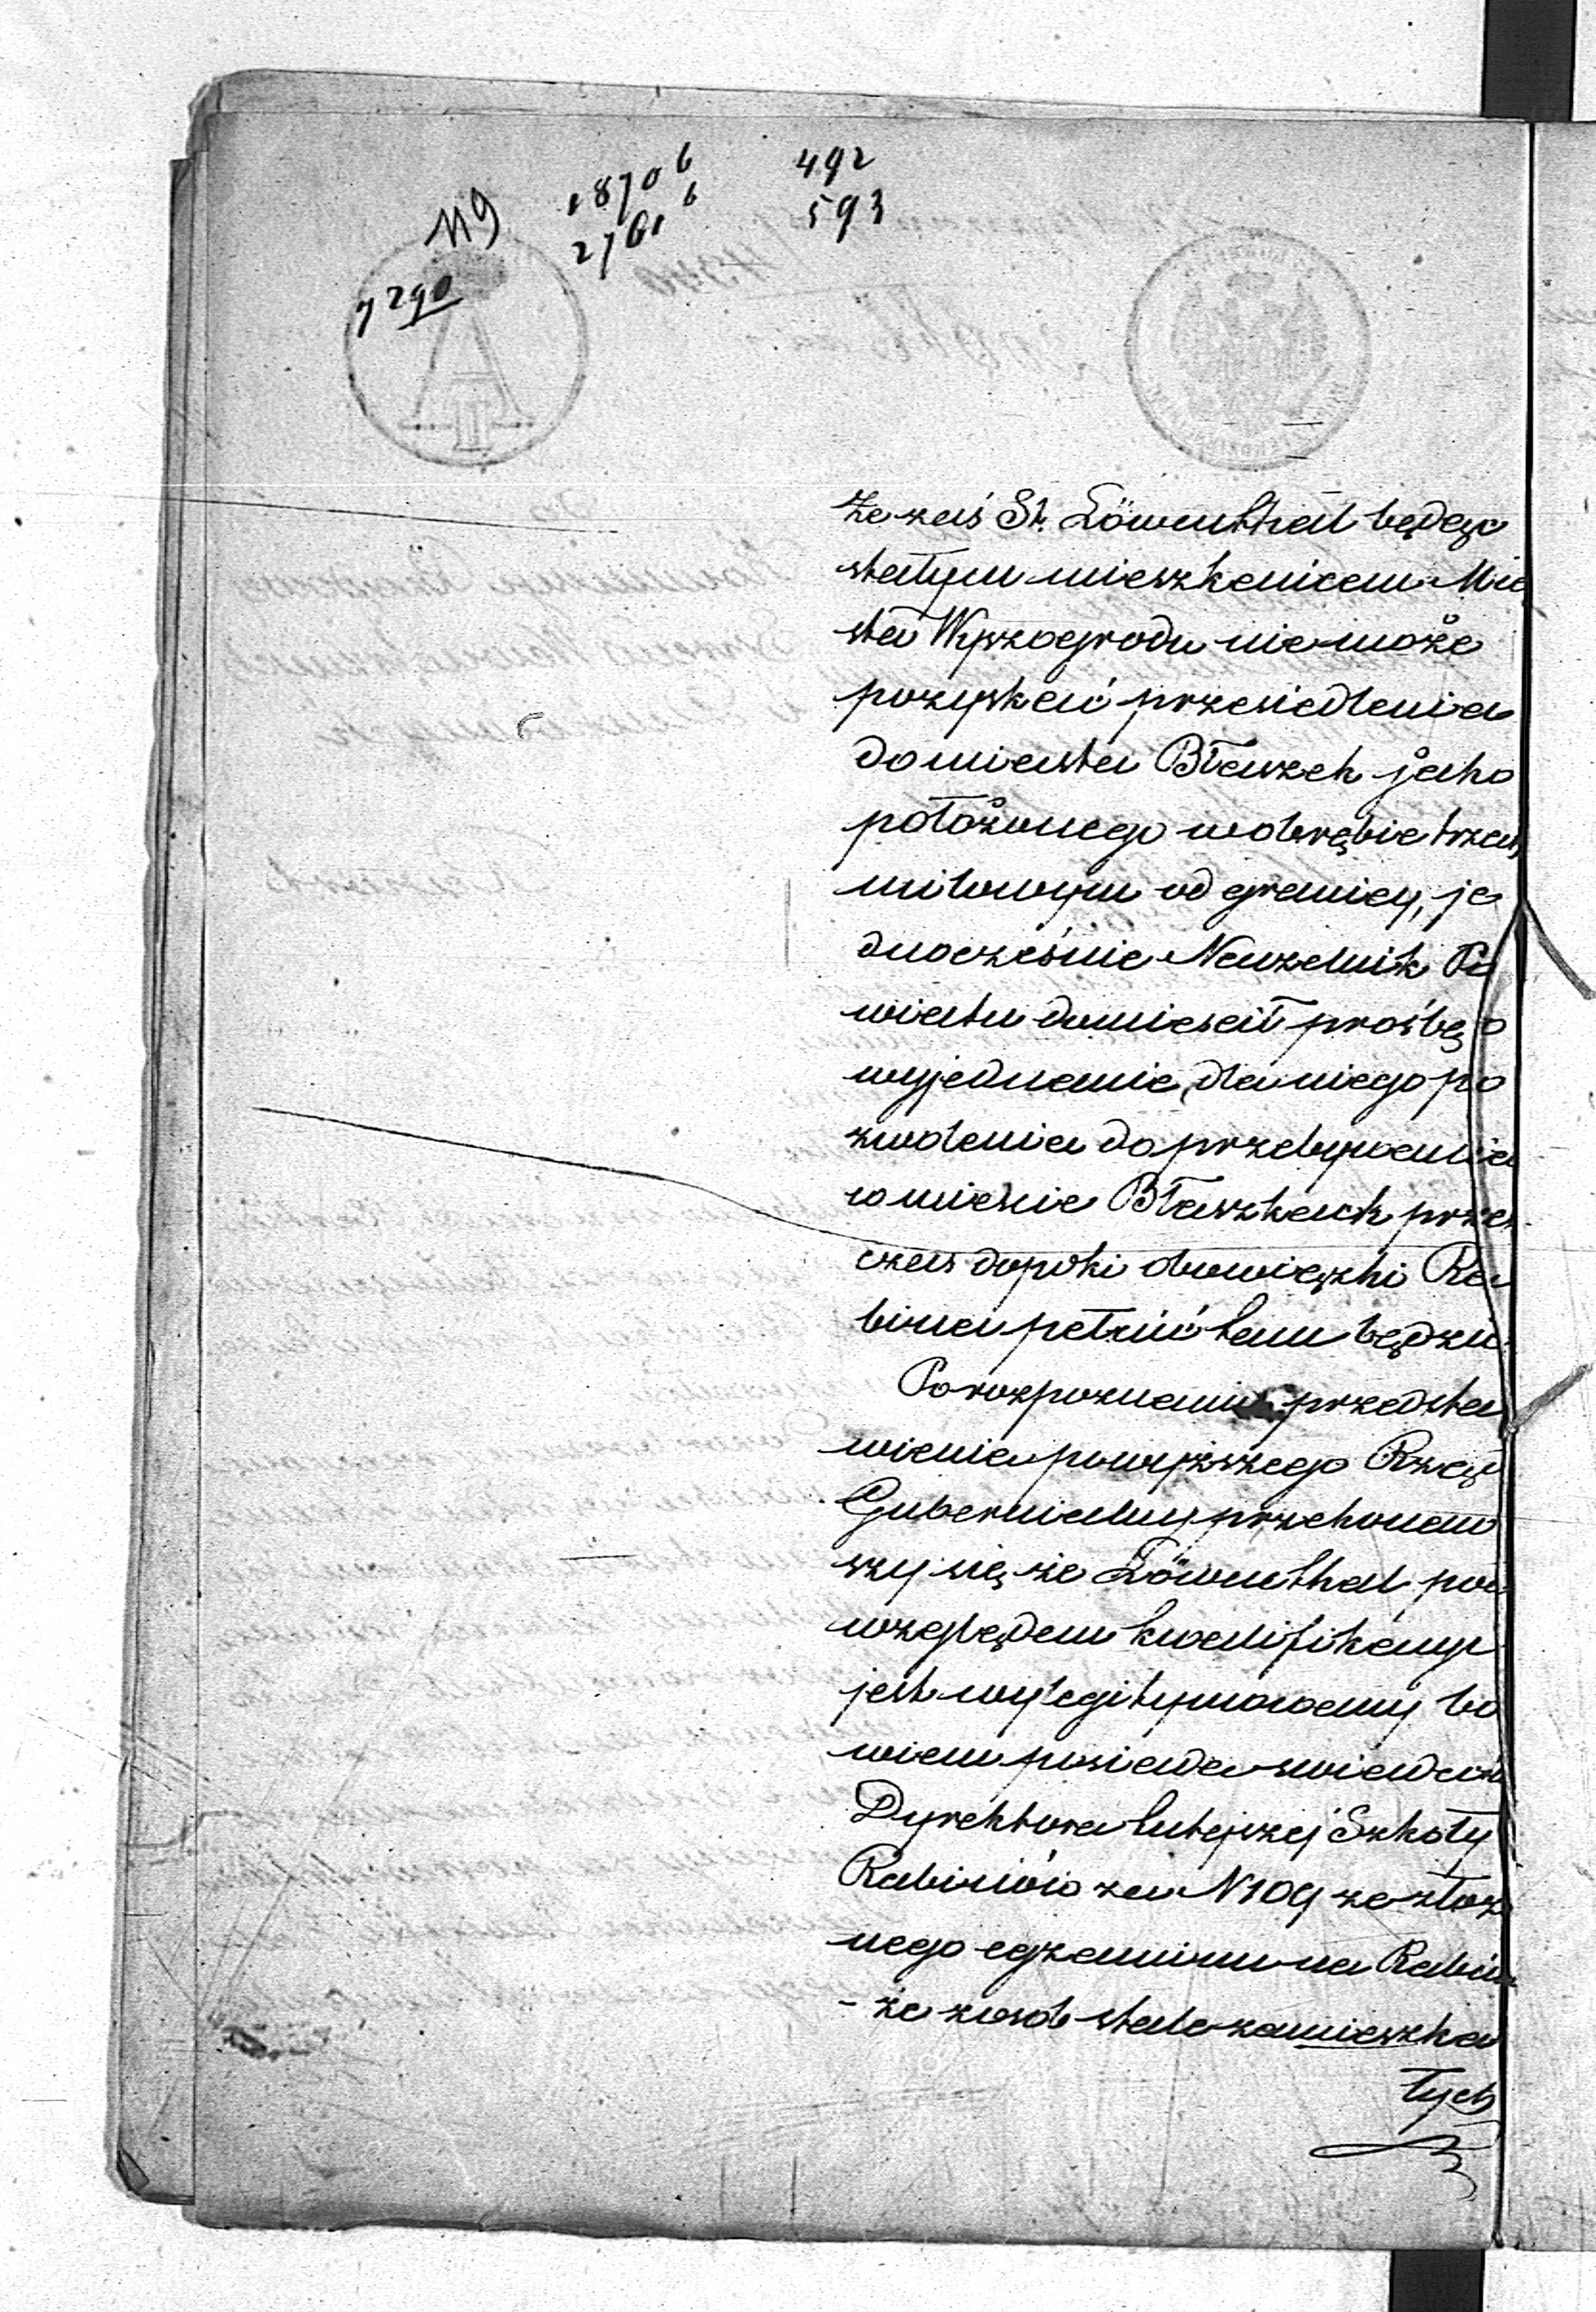 119
7290
18706
27616
492
593
Że zaś St. Löwenthal będąc
stałym mieszkańcem Mia
sta Wyszogrodu nie może
pozyskać przesiedlenia
do miasta Błaszek jako
położonego w obrębie trzech
milowym od granicy, je
dnocześnie Naczelnik Po
wiatu domieścił prośbę o
wyjednanie dla niego po
zwolenia do przebywania
w mieście Błaszkach przez
czas dopóki obowiązki Ra
bina pełnić tam będzie.
Po rozpoznaniu przedsta
wienia powyższego Rząd
Gubernialny przekonaw
szy się że Löwenthal pod
względem kwalifikacyi
jest wylegitymowany bo
wiem posiada swiadect
Dyrektora tutejszej Szkoły
Rabinów za N 109 ze złożo
nego egzaminu na Rabina
- że zosob stale zamieszka
łych